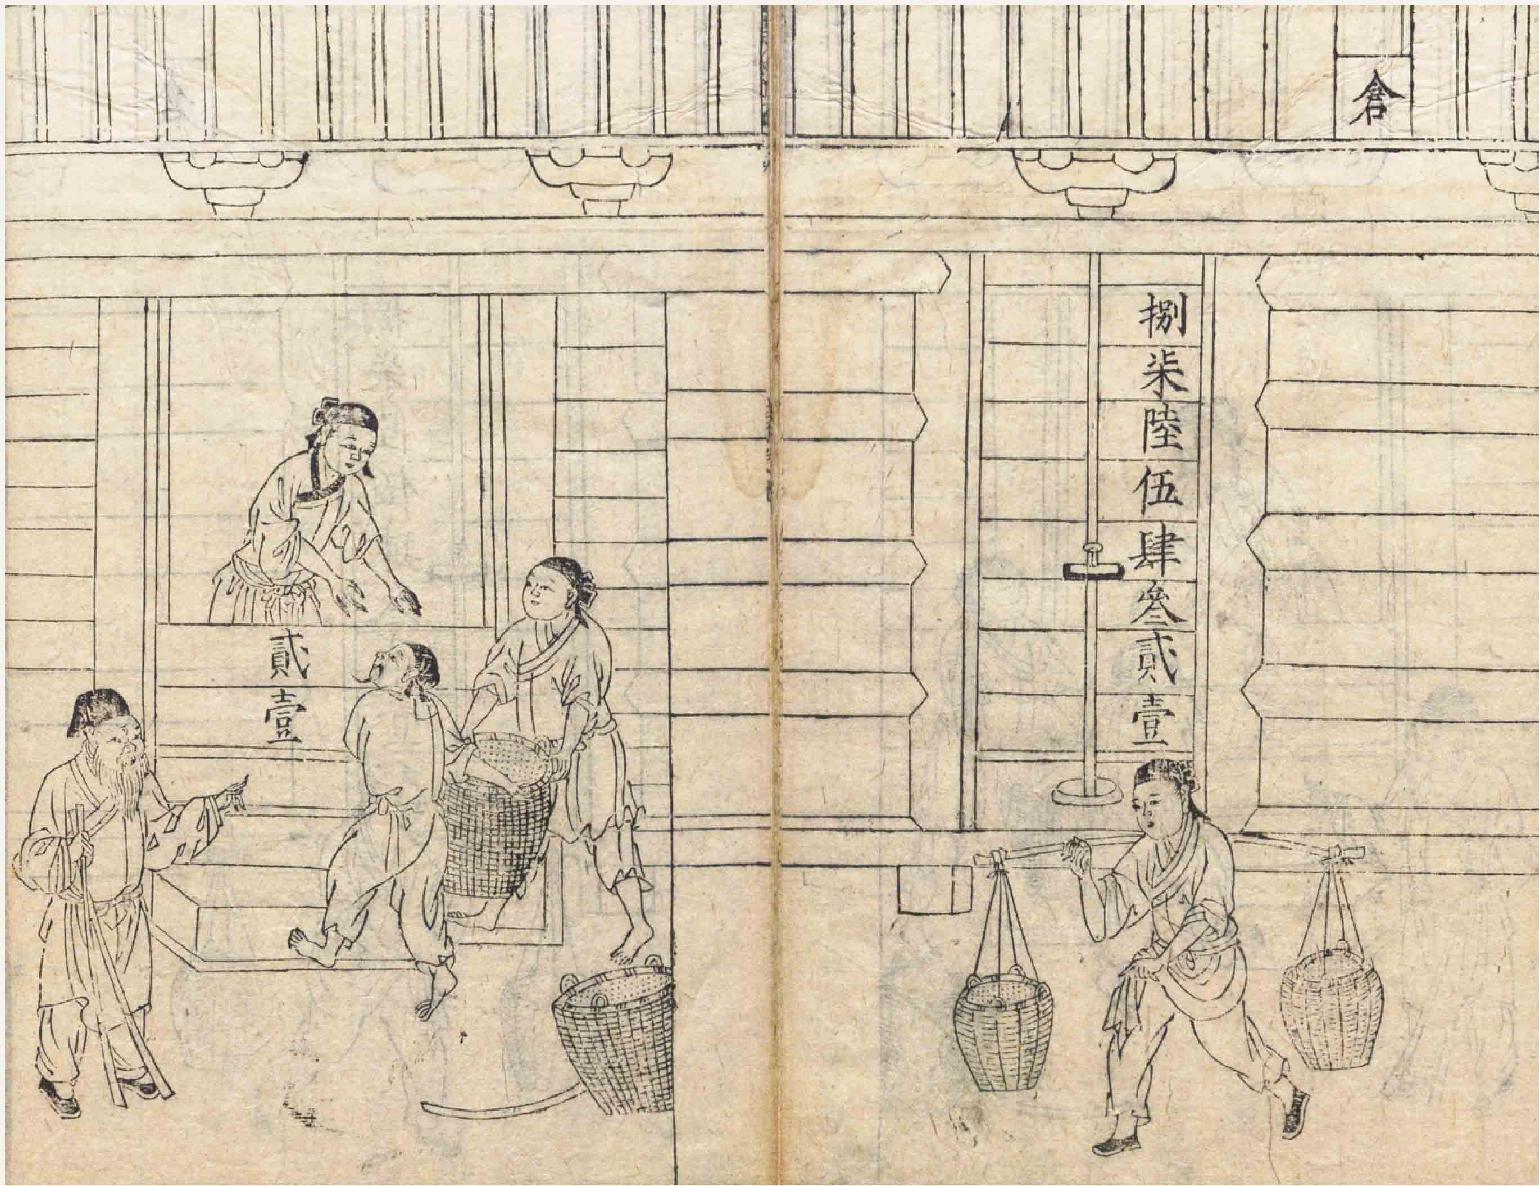 倉
捌柒陸伍肆叄貳壹
貳壹